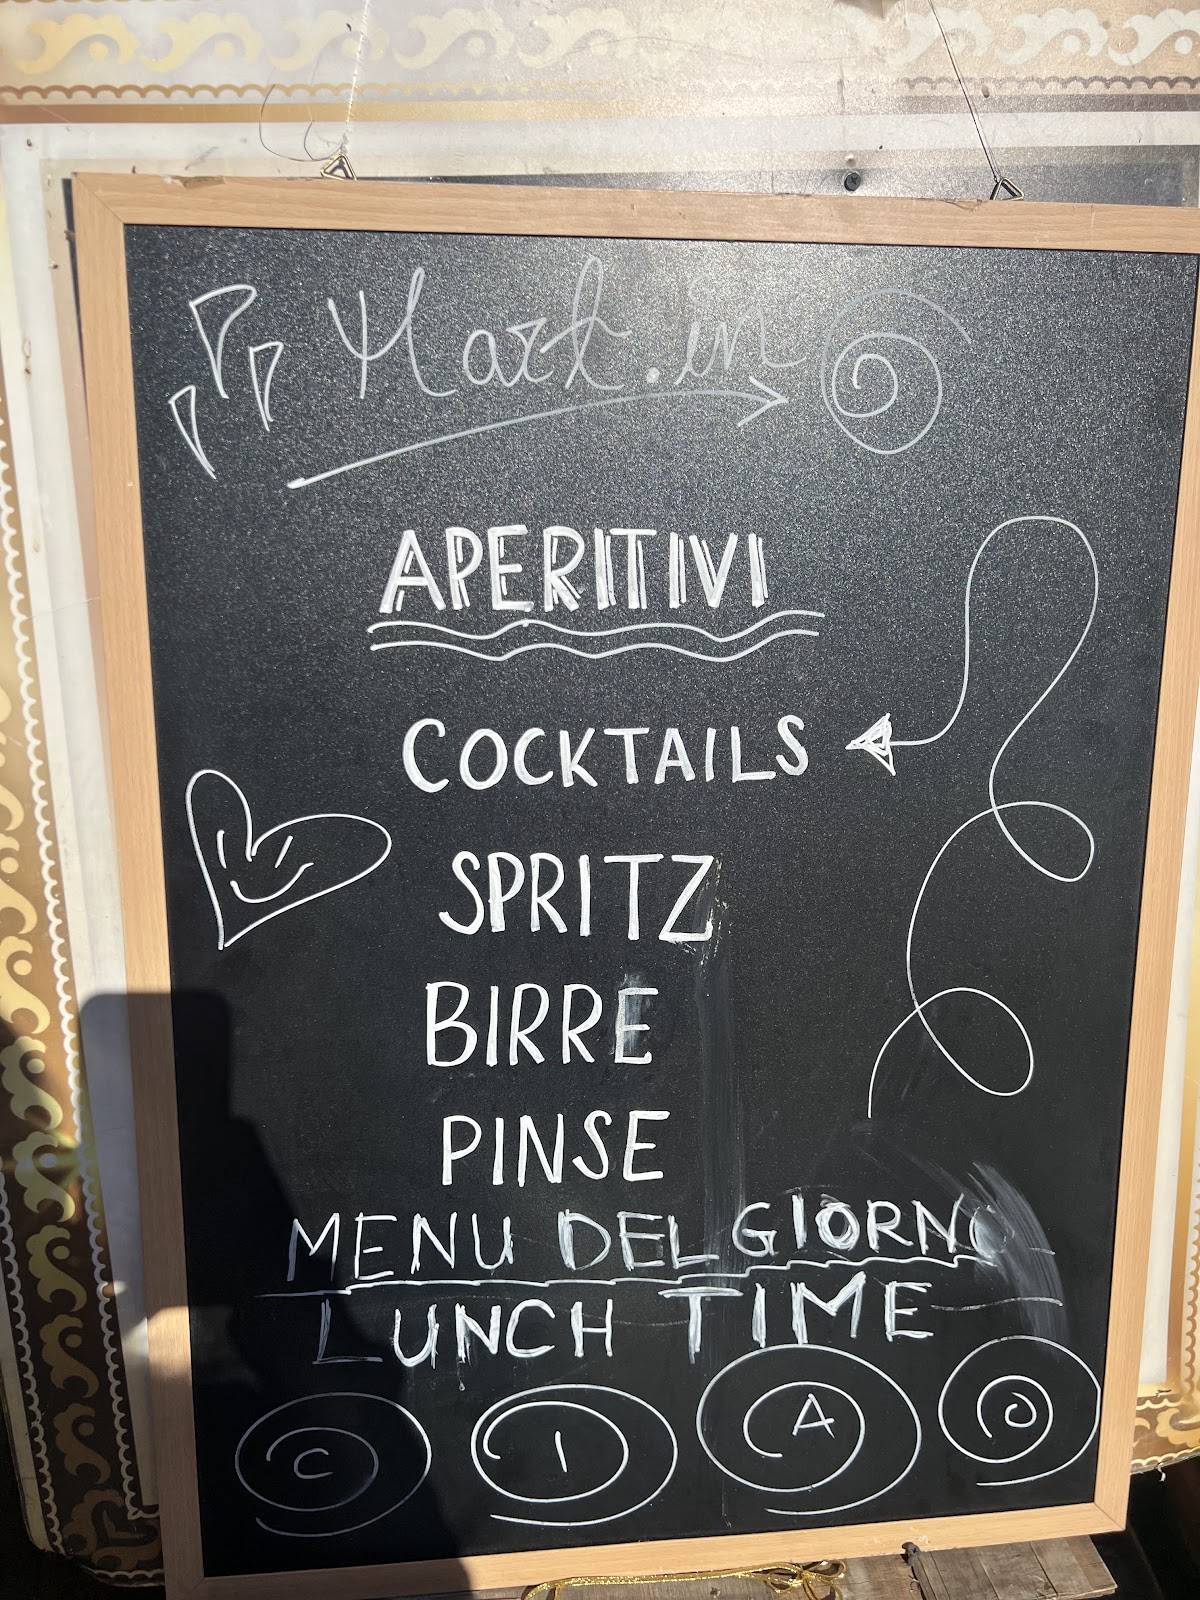 Mart.in
APERITIVI
COCKTAILS
SPRITZ
BIRRE
PINSE
MENU DEL GIORNO
LUNCH TIME
C I A O